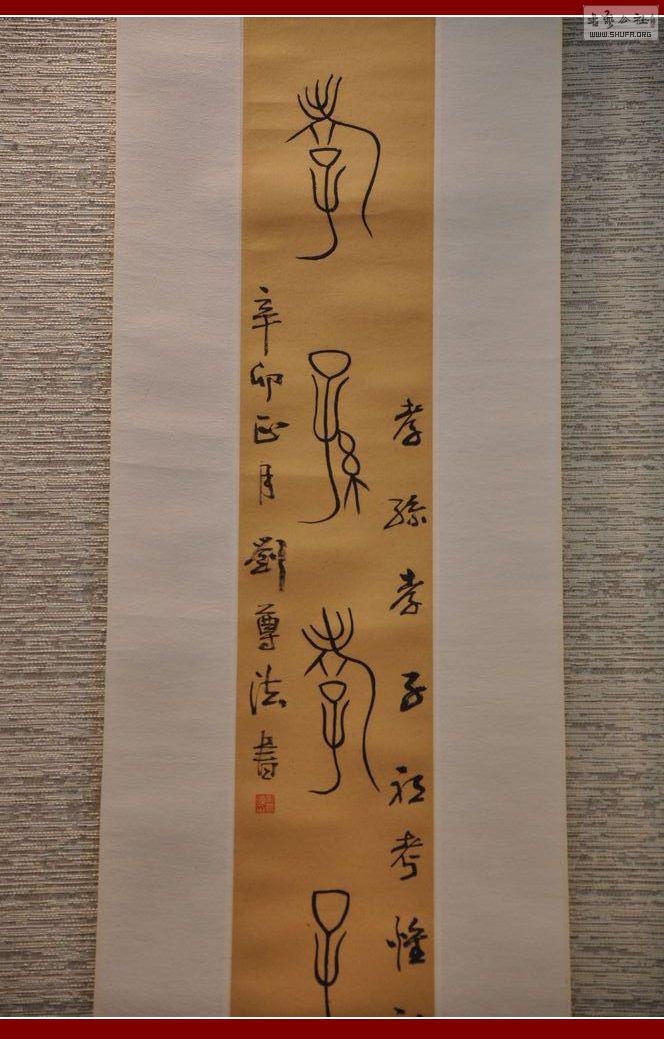 书家公社
WWW.SHUFA.ORG
孝孫孝子祖考
孝孫孝子
辛卯正月劉尊法書